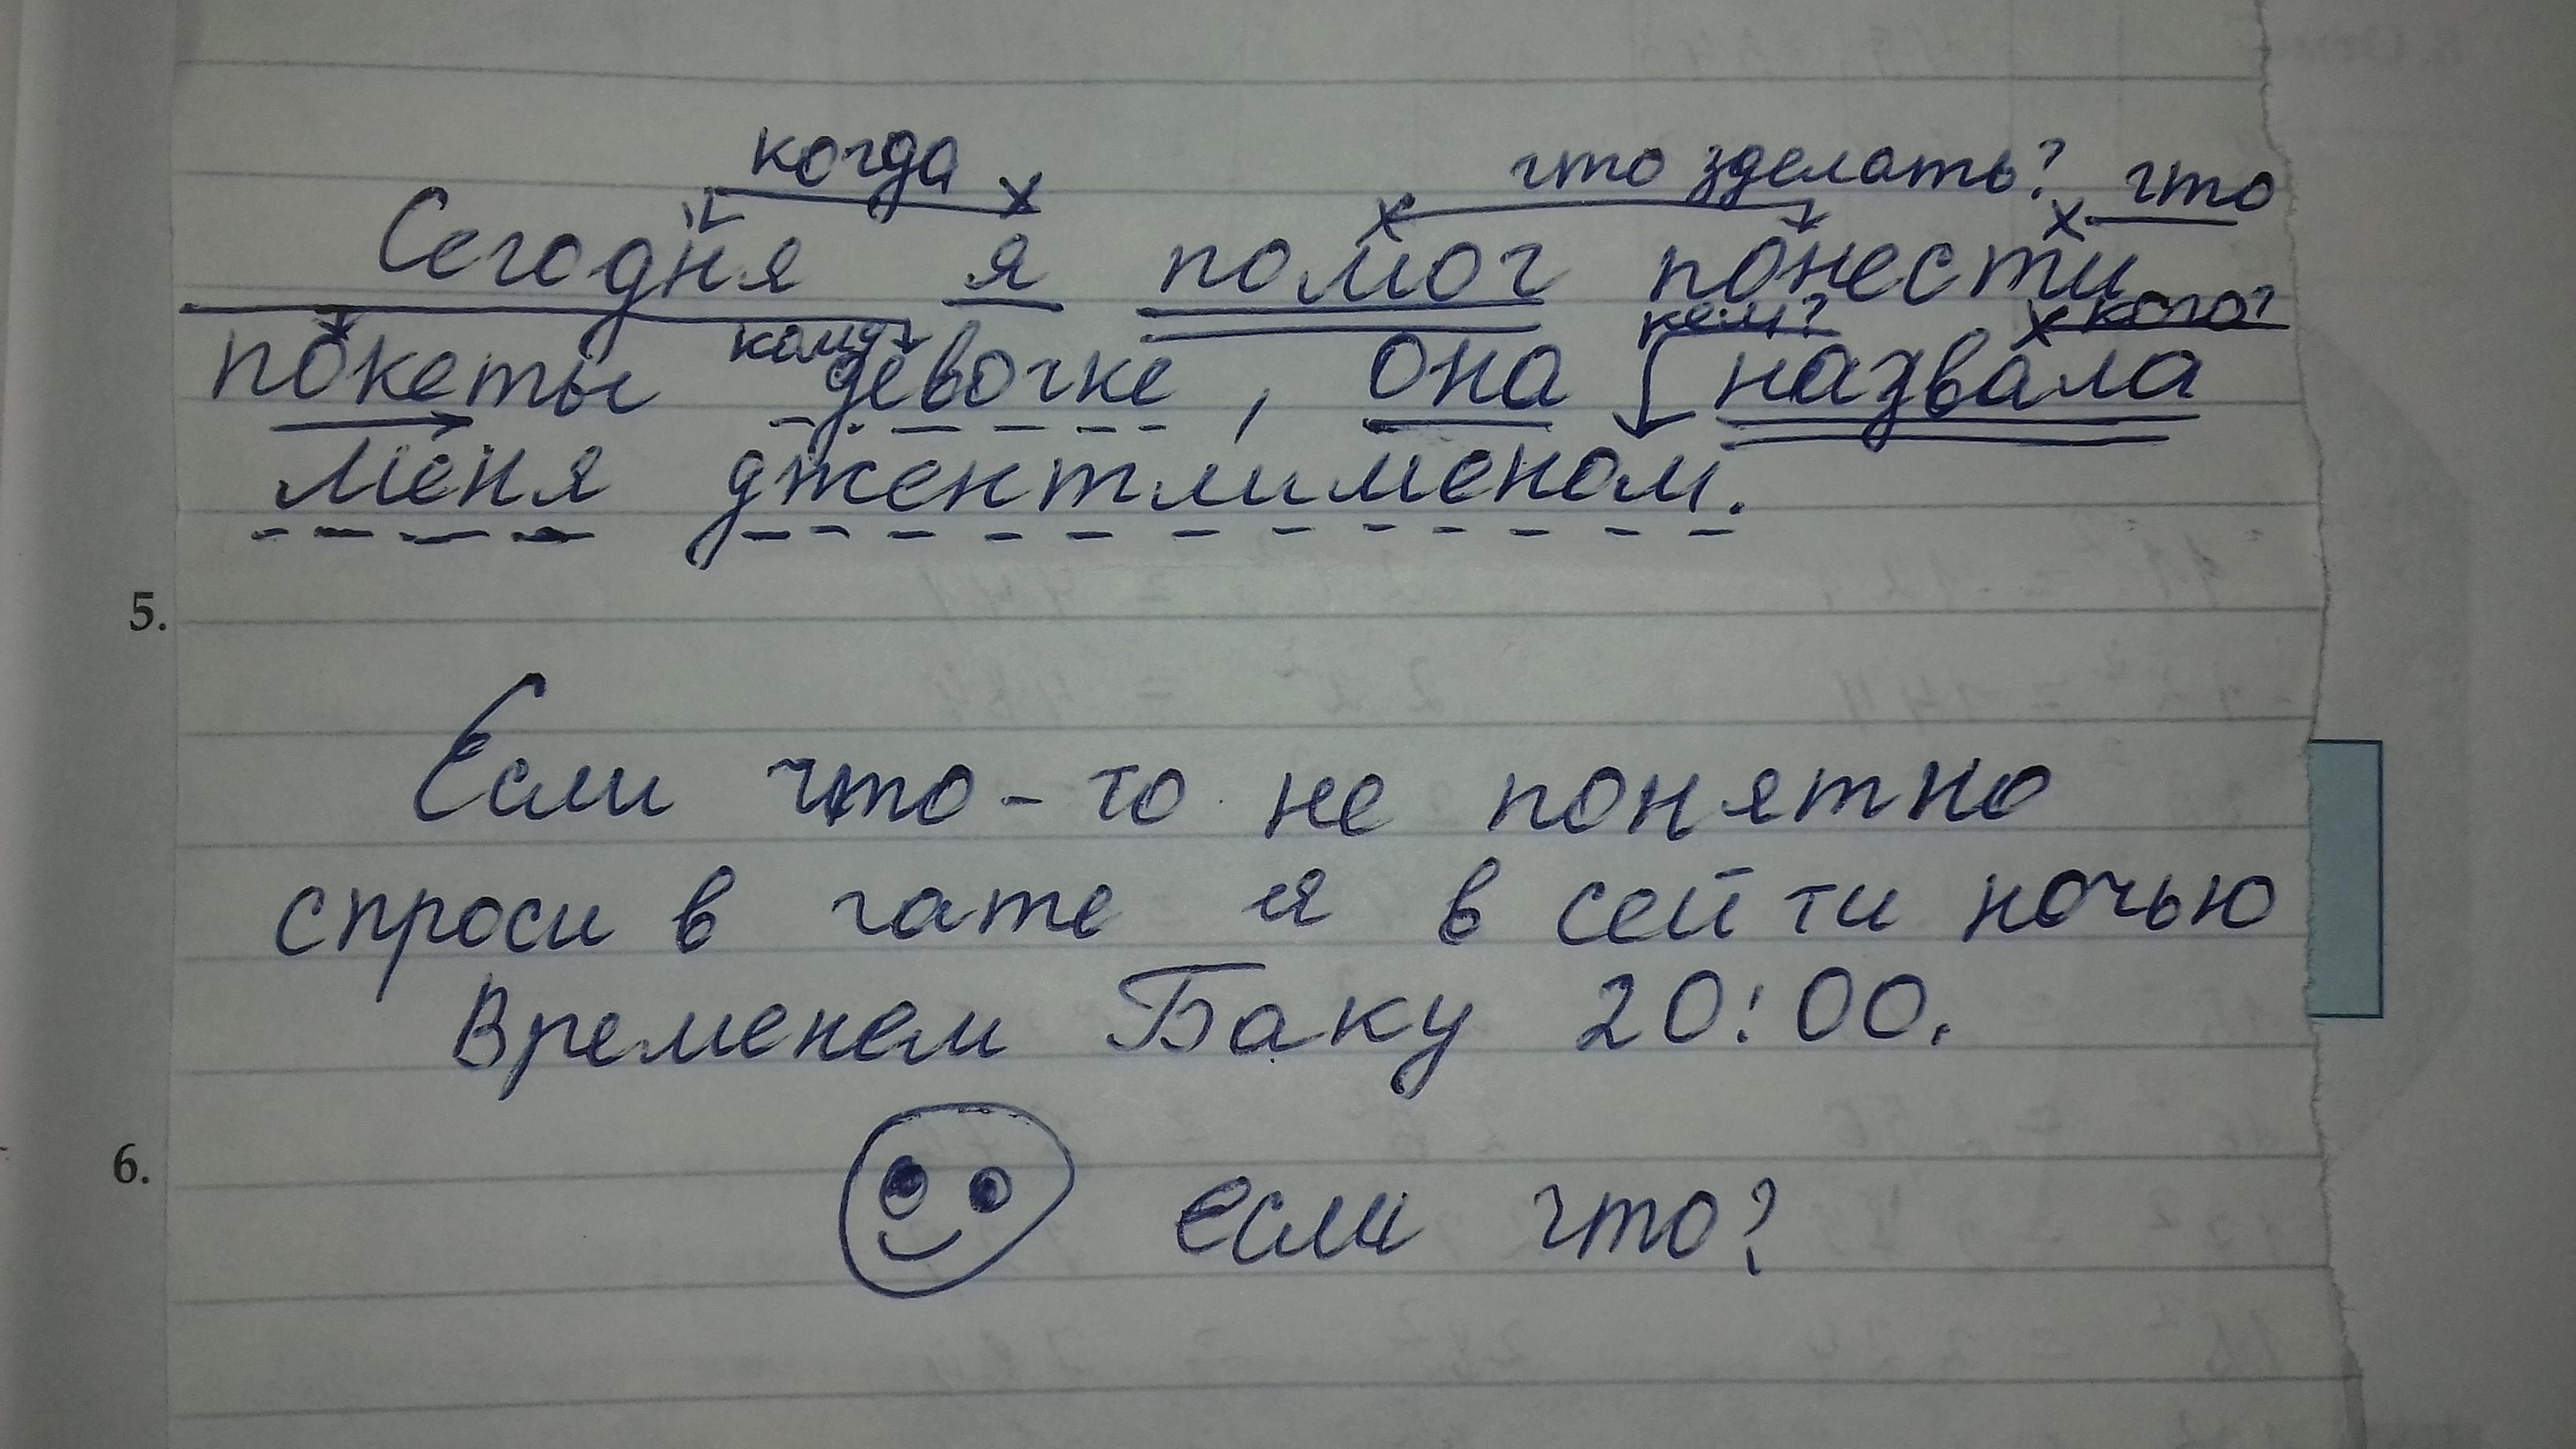 когда что зделать? что
Сегодня я помог понести
кому кем? кого?
покеты девочке, она назвала
меня джентлименом.
5.
Если что-то не понятно
спроси в чате я в сейти ночью
Временем Баку 20:00.
6.
если что?